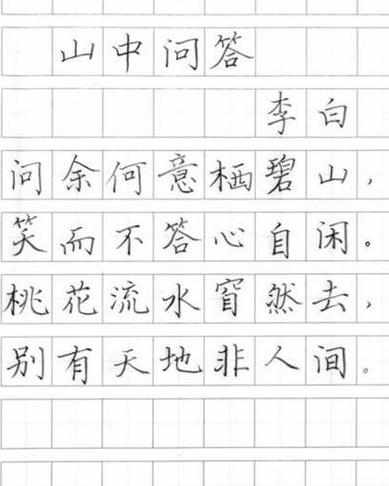 山中问答
李白
问余何意栖碧山，
笑而不答心自闲。
桃花流水窅然去，
别有天地非人间。